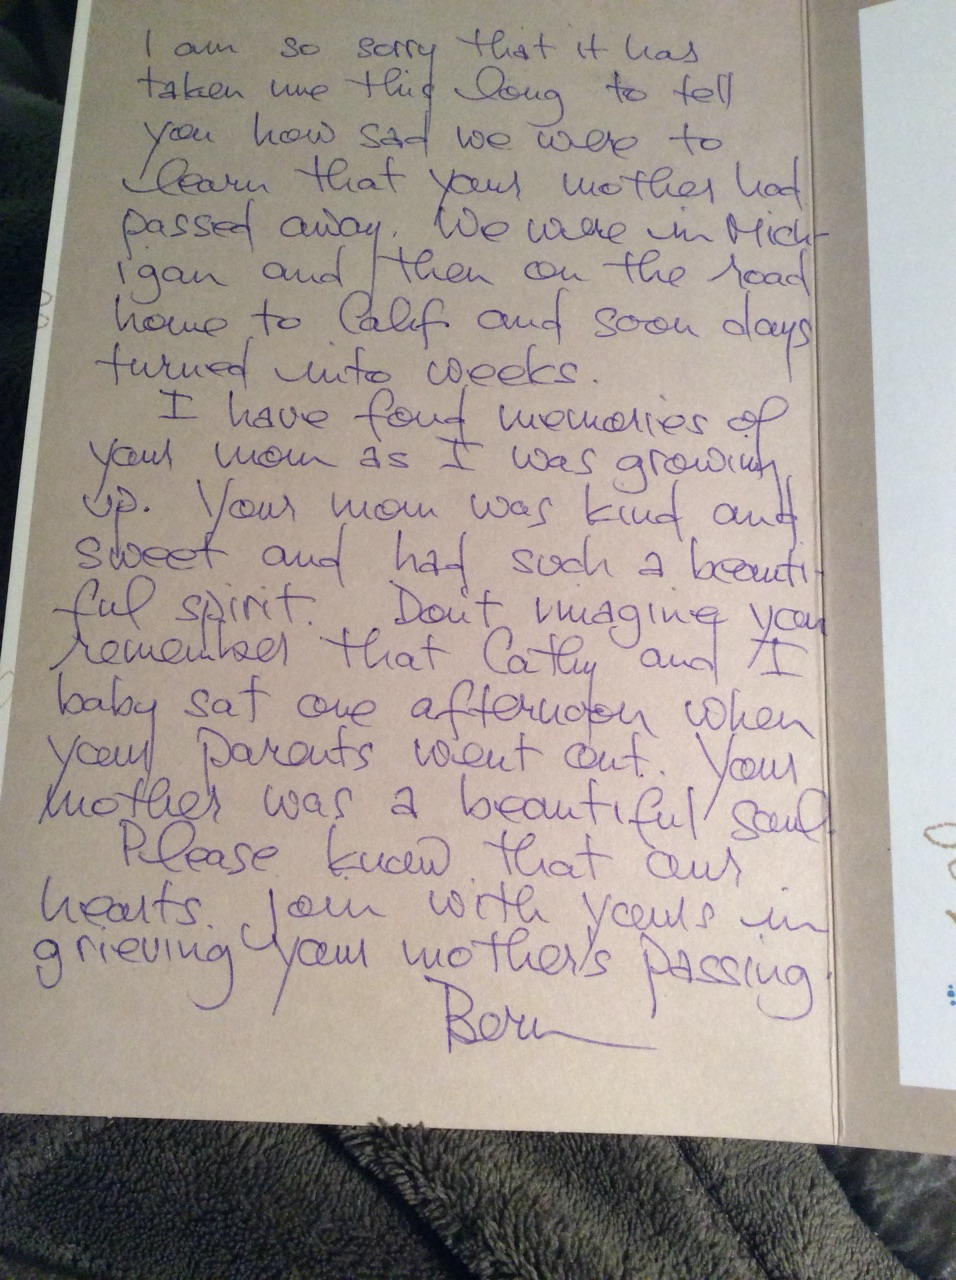 I am so sorry that it has
taken me this long to tell
you how sad we were to
learn that your mother had
passed away. We were in Mich-
igan and then on the road
home to Calif. and soon days
turned into weeks.
I have fond memories of
your mom as I was growing
up. Your mom was kind and
sweet and had such a beauti-
ful spirit. Don't imagine you
remember that Cathy and I
baby sat one afternoon when
your parents went out. Your
mother was a beautiful soul.
Please know that our
hearts join with yours in
grieving your mother's passing.